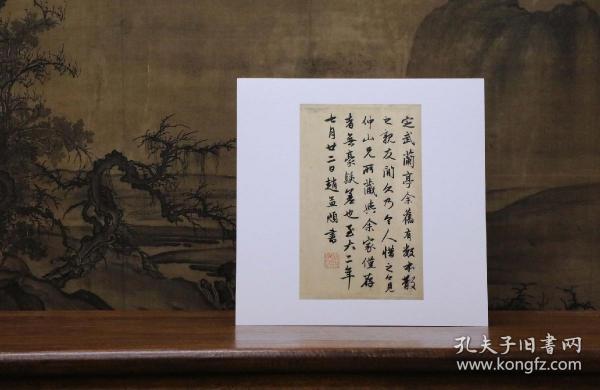 定武蘭亭余舊有數本散
之親友間久乃令人惜之今見
仲山兄所藏與余家僅存
者無豪髮差也至大二年
七月廿二日趙孟頫書
孔夫子旧书网
www.kongfz.com